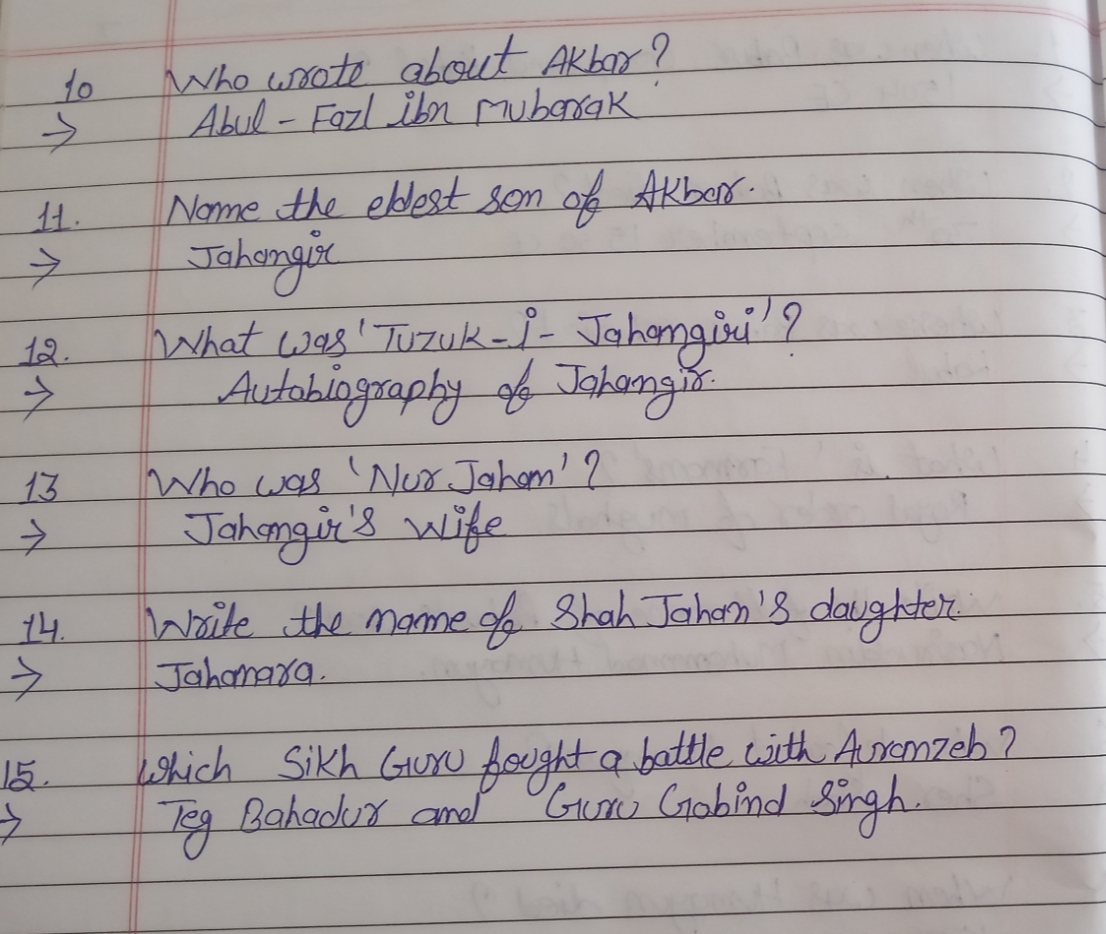 10 Who wrote about Akbar?
→ Abul-Fazl ibn Mubarak
11. Name the eldest son of Akbar.
→ Jahangir
12. What was 'Tuzuk-i-Jahangiri'?
→ Autobiography of Jahangir.
13 Who was 'Nur Jahan'?
→ Jahangir's Wife
14. Write the name of Shah Jahan's daughter.
→ Jahanara.
15. Which Sikh Guru fought a battle with Auranzeb?
→ Teg Bahadur and Guru Gobind Singh.